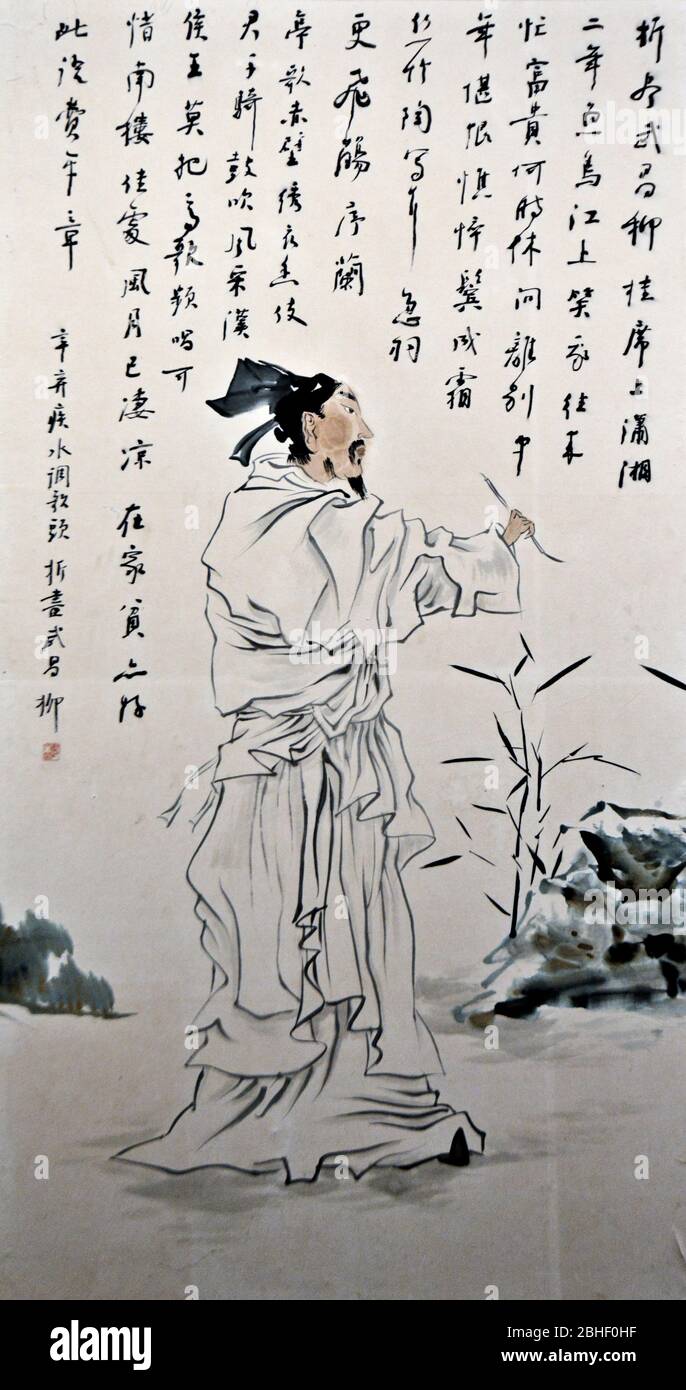 折尽武昌柳挂席上瀟湘
二年魚鳥江上笑我往来
忙富貴何時休问離别中
年堪恨憔悴鬓成霜
丝竹陶写耳急羽
更飛觴序蘭
亭歌赤壁绣衣香使
君千騎鼓吹風采漢
侯王莫把歌頻唱可
惜南樓佳處風月已凄涼在家貧亦好
此語費平章
辛弃疾水调歌頭折尽武昌柳
alamy
Image ID: 2BHF0HF
www.alamy.com